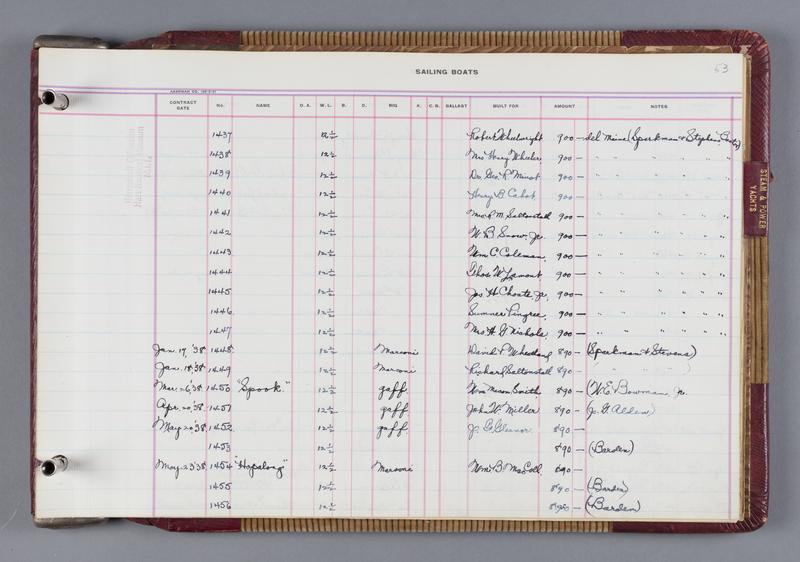 SAILING BOATS
53
CONTRACT DATE No. NAME O.A. W.L. B. D. RIG K. C.B. BALLAST BUILT FOR AMOUNT NOTES
1437 12½ Robert Wheelwright 900— del Maine (Sparkman & Stephens,
1438 12½ Mrs Harry Wheeler 900— " " " " " "
1439 12½ Dr. Geo. R. Minot 900— " " " " " "
1440 12½ Henry B. Cabot 900— " " " " " "
1441 12½ Saltonstall 900— " " " " " "
1442 12½ W. B. Snow, Jr. 900— " " " " " "
1443 12½ Wm C. Coleman 900— " " " " " "
1444 12½ Thos W. Lamont 900— " " " " " "
1445 12½ Jos H. Choate, Jr. 900— " " " " " "
1446 12½ Sumner Pingree 900— " " " " " "
1447 12½ Mrs H. G. Nichols 900— " " " " " "
Jan. 17, '38 1448 12½ Marconi David P. Wheatland 890— (Sparkman & Stevens)
Jan. 18, '38 1449 12½ Marconi Richard Saltonstall 890— ( " " " )
Mar. 26, '38 1450 "Spook" 12½ gaff Wm Smith 890— (W. E. Bowman, Jr.
Apr. 20, '38 1451 12½ gaff John W. Miller 890— (J. G. Alden)
May 20, '38 1452 12½ gaff J. G. 890—
1453 12½ 890— (Barden)
May 23 '38 1454 "Hopalong" 12½ Marconi Wm. B. MacColl 890—
1455 12½ 890— (Barden)
1456 12½ 890— (Barden)
STEAM & POWER
YACHTS